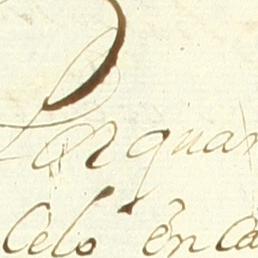 Porquan
Celo en Ca